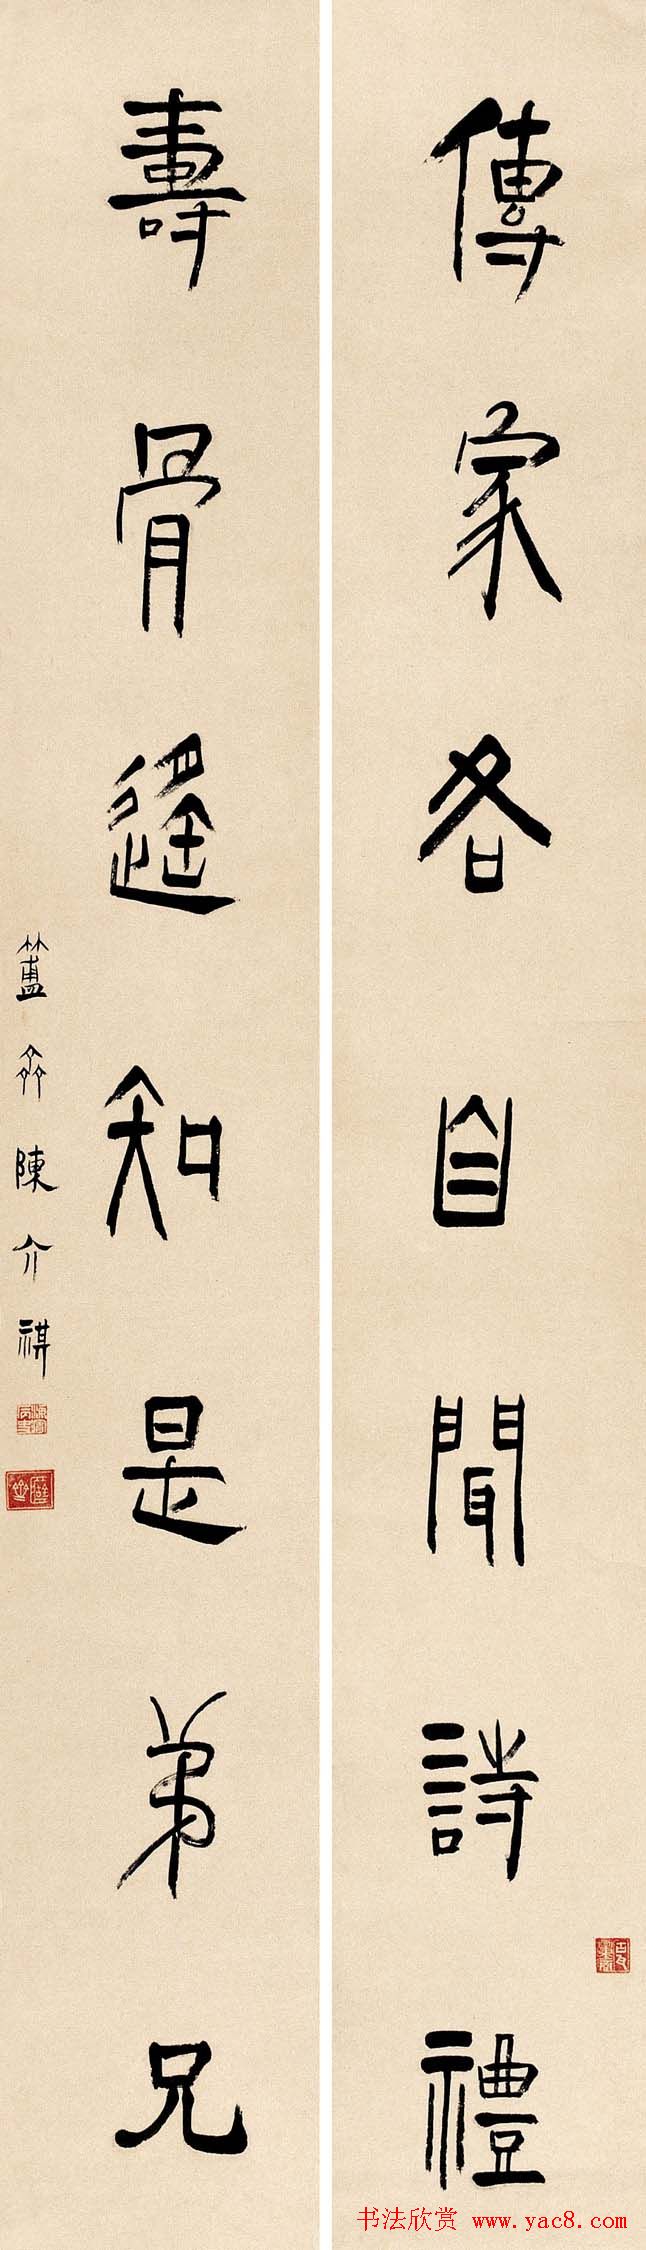 傳家各自聞詩禮
壽骨遥知是弟兄
簠齋陳介祺
书法欣赏 www.yac8.com